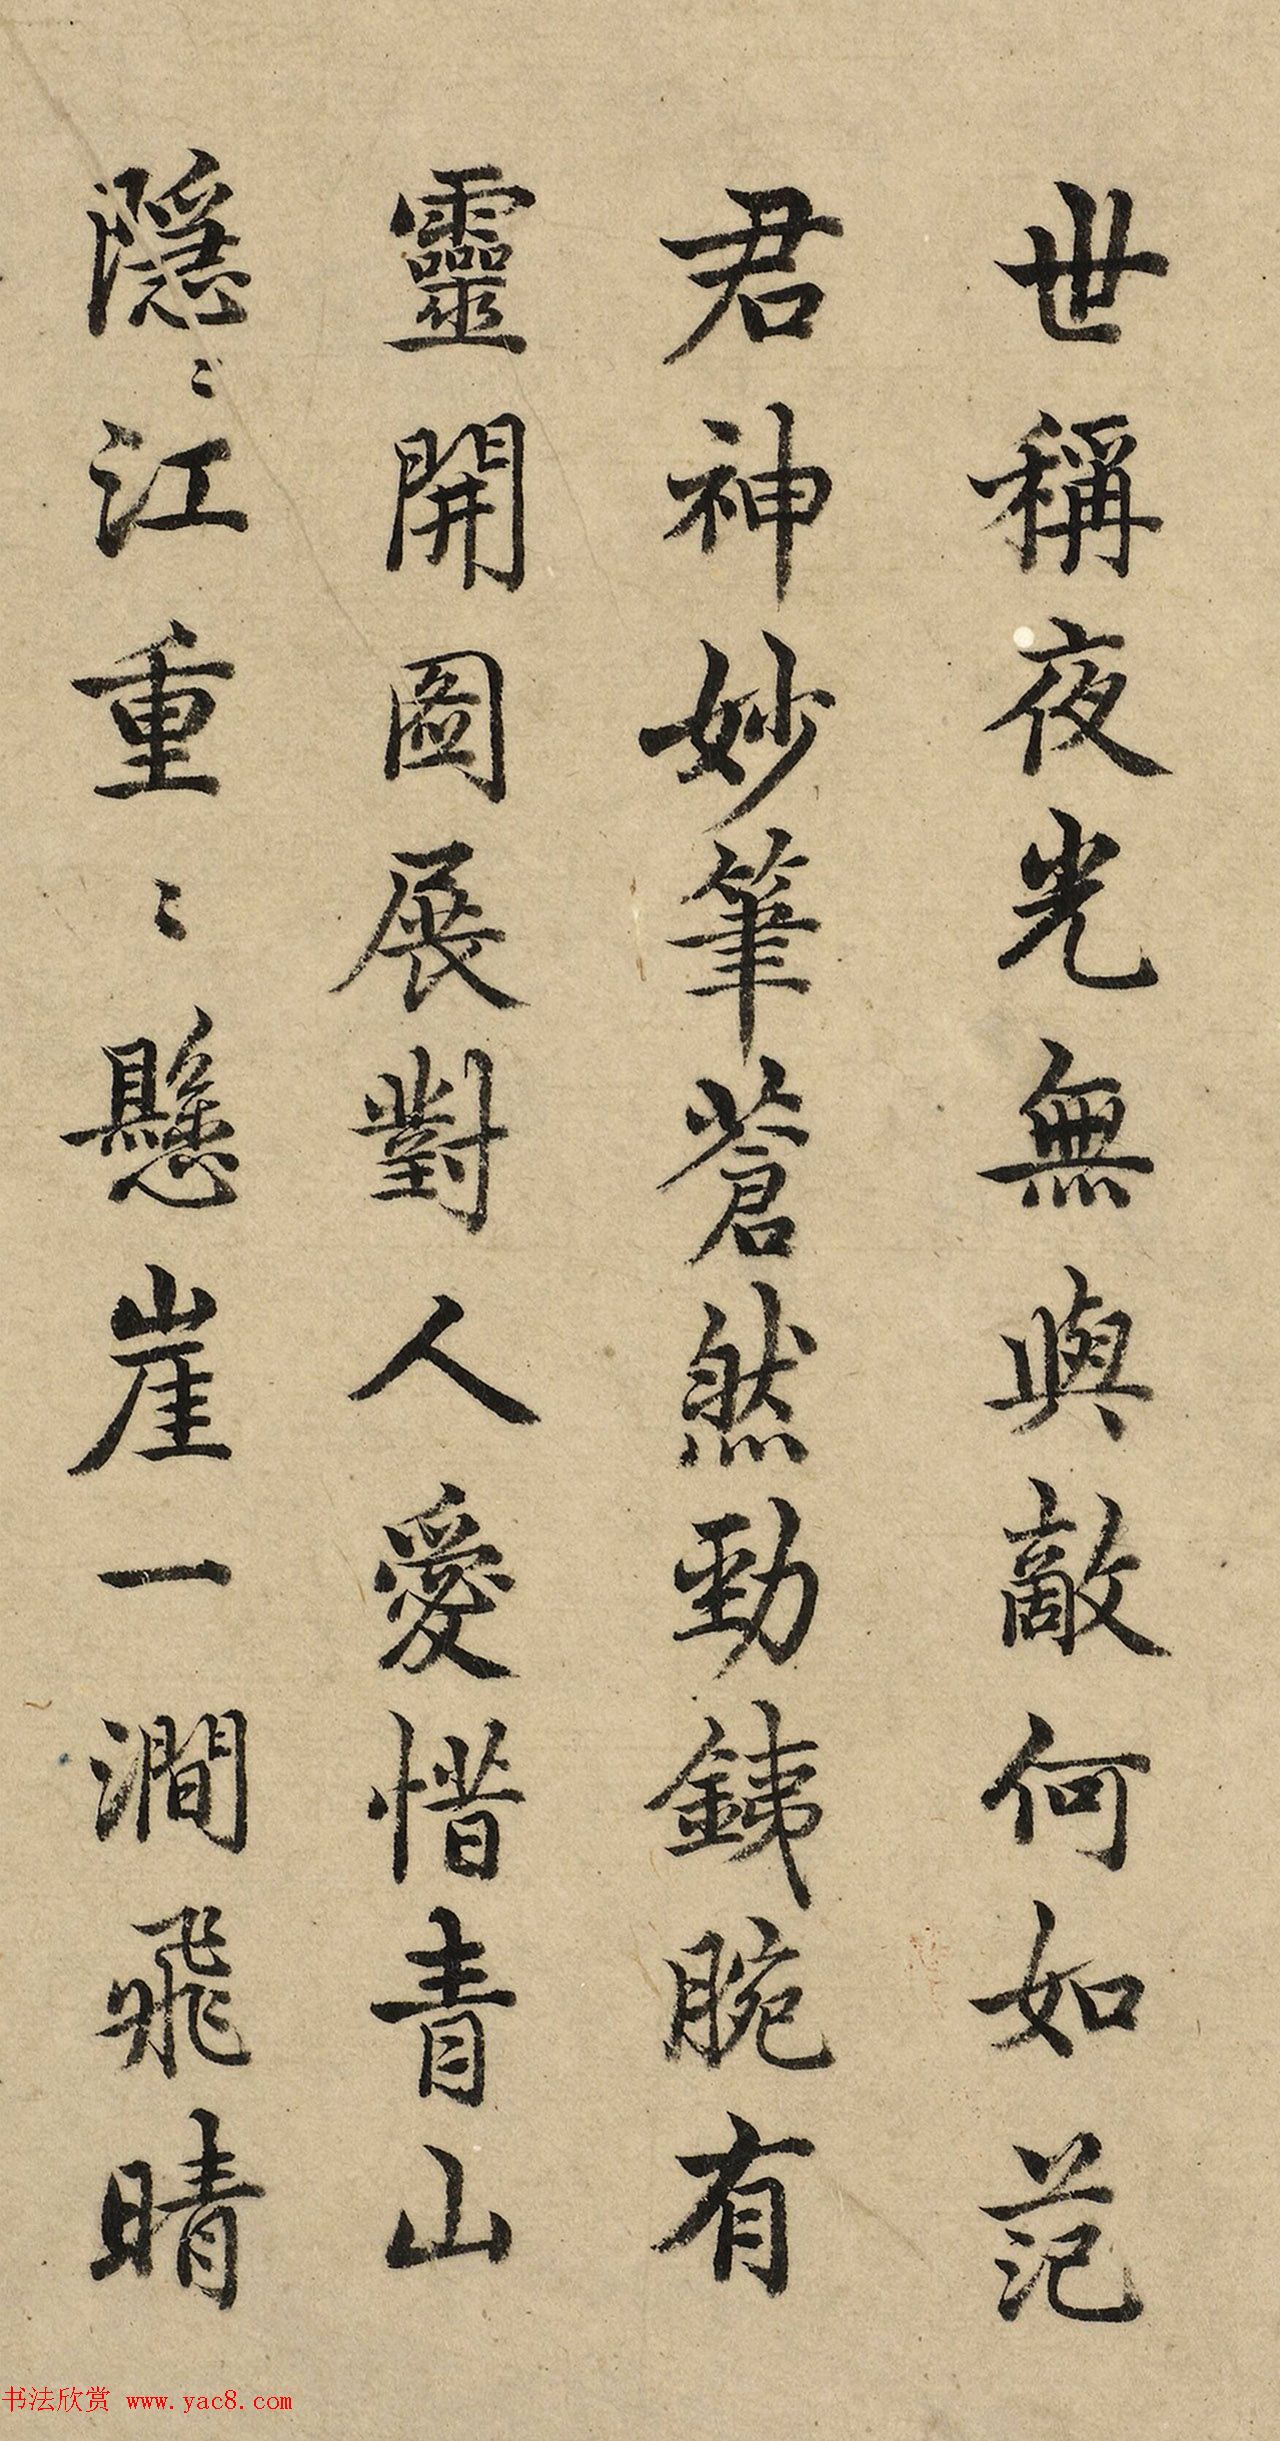 世稱夜光無與敵何如范
君神妙筆蒼然勁銕腕有
靈開圖展對人愛惜青山
隱〻江重〻懸崖一澗飛晴
书法欣赏 www.yac8.com